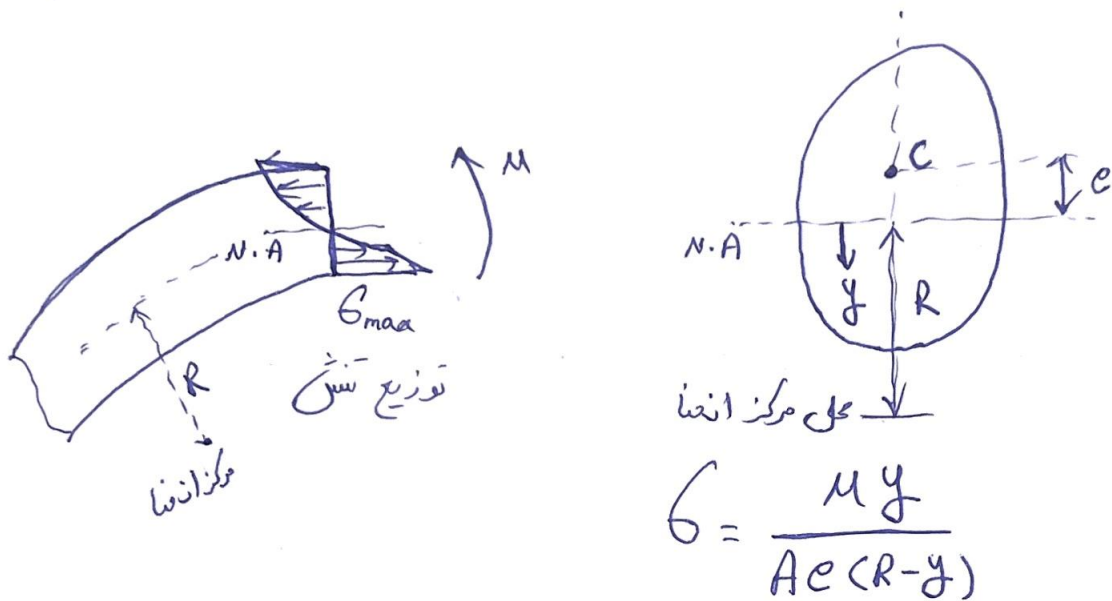 M
N.A
σmax
توزیع تنش
R
مرکز انحنا
C
e
N.A
y
R
محل مرکز انحنا
σ = My / Ae(R-y)